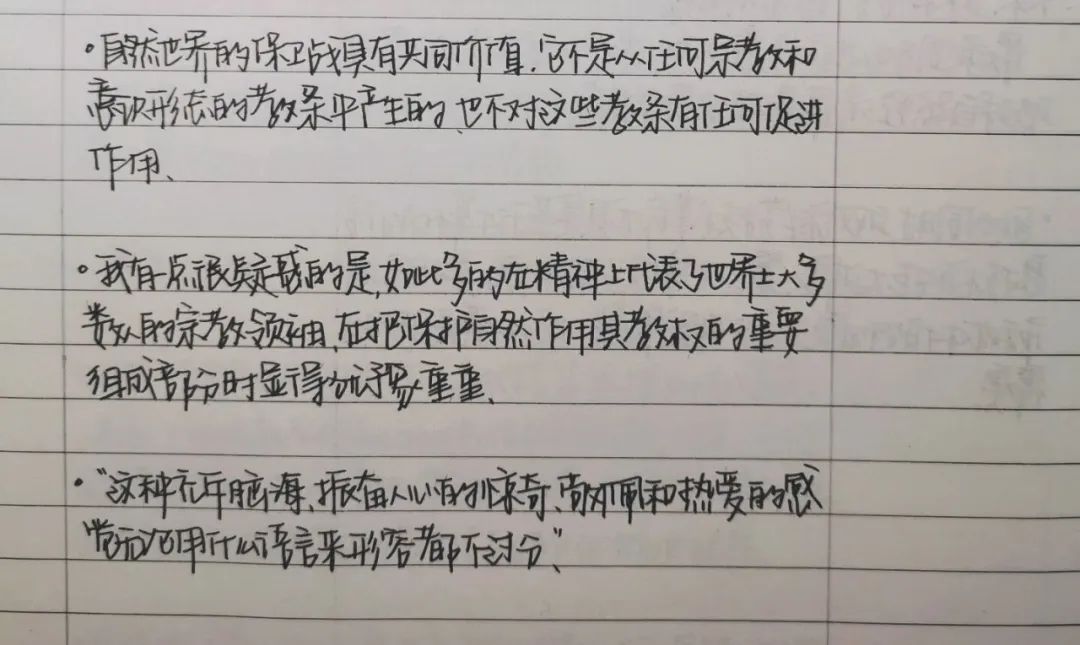 ·自然世界的保卫战具有共同价值.它不是从任何宗教和
意识形态的教条中产生的,也不对这些教条有任何促进
作用、
·我有一点很疑惑的是,如此多的在精神上代表了世界上大多
数人的宗教领袖,在把保护自然作用其教权的重要
组成部分时显得犹豫重重、
·"这种充斥脑海、振奋人心的惊奇、敬佩和热爱的感
觉无论用什么语言来形容都不过分、"